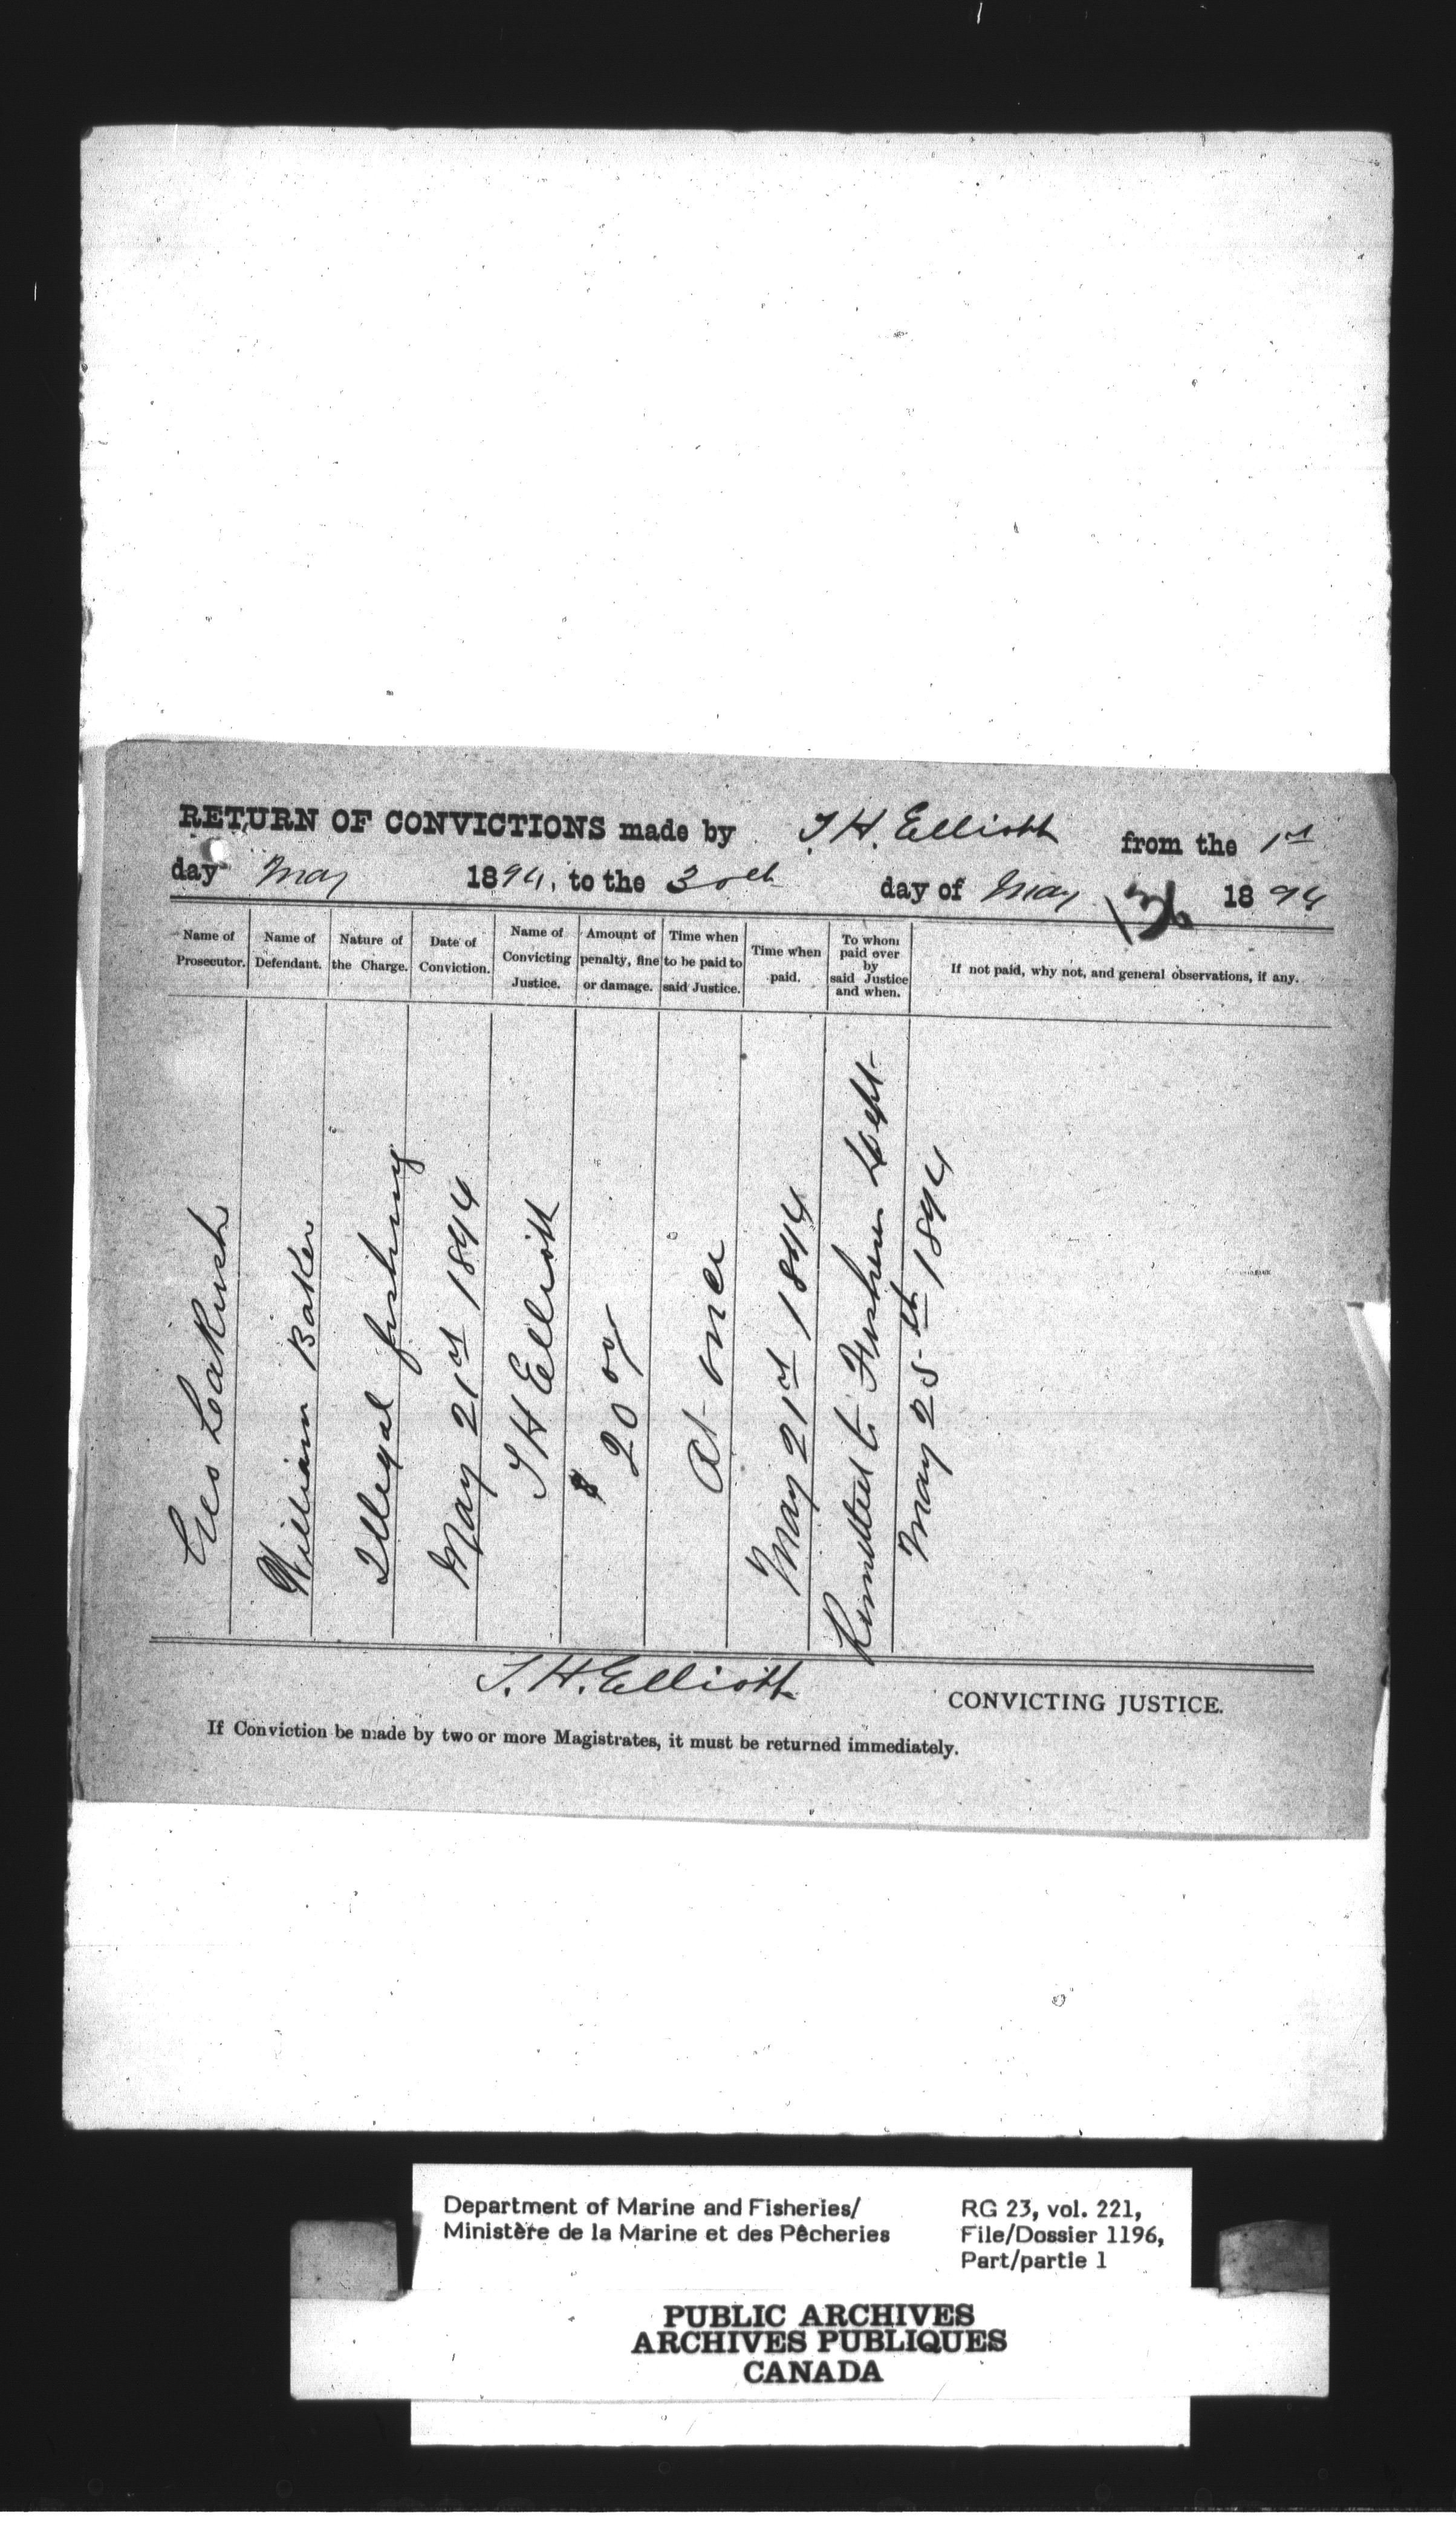 RETURN OF CONVICTIONS made by T. H. Elliott from the 1st
day May 1894, to the 30th day of May 1894
136
Name of Prosecutor.
Name of Defendant.
Nature of the Charge.
Date of Conviction.
Name of Convicting Justice.
Amount of penalty, fine or damage.
Time when to be paid to said Justice.
Time when paid.
To whom paid over by said Justice and when.
If not paid, why not, and general observations, if any.
Geo
William Baker
Illegal fishing
May 21st 1894
T H Elliott
$ 20
At once
May 21st 1894
Remitted to Fisheries Dept
May 25th 1894
T. H. Elliott
CONVICTING JUSTICE.
If Conviction be made by two or more Magistrates, it must be returned immediately.
Department of Marine and Fisheries/
Ministère de la Marine et des Pêcheries
RG 23, vol. 221,
File/Dossier 1196,
Part/partie 1
PUBLIC ARCHIVES
ARCHIVES PUBLIQUES
CANADA